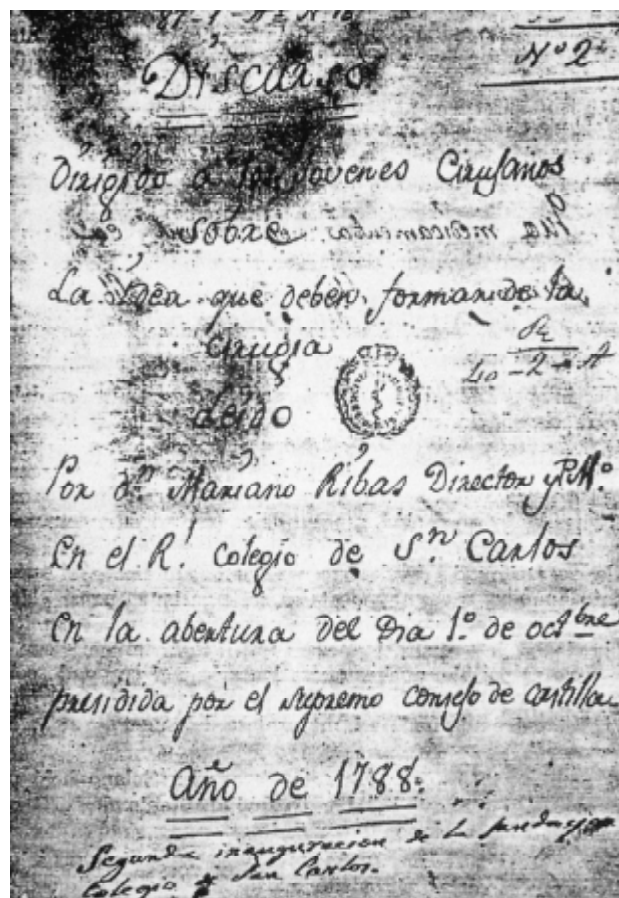 Nº 2º
Discurso
Dirigido a los Jovenes Cirujanos
Sobre
La Ydea que deben formar de la
cirugia
Leido
Por dn. Mariano Ribas Director y P. Mº.
En el R.l colegio de Sn. Carlos
En la abertura del Dia 1.º de octbre
presidida por el supremo consejo de castilla
Año de 1788.
Segunda inauguracion de la
Colegio de San Carlos.